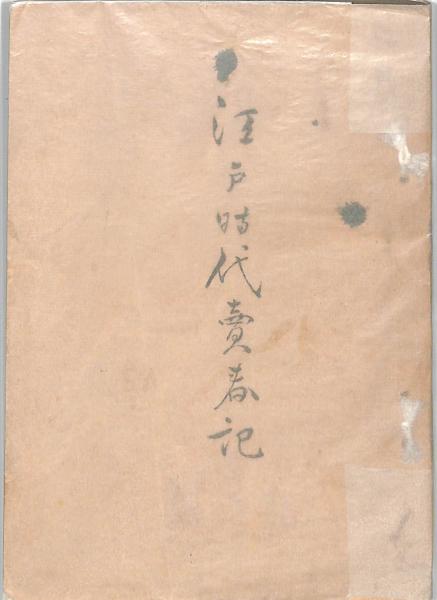 江戸時代賣春記